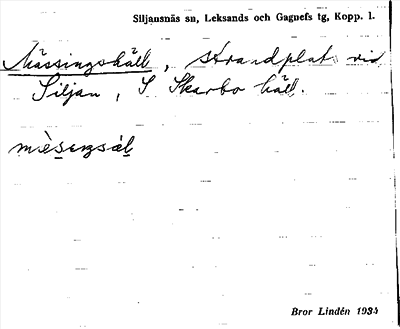 Siljansnäs sn, Leksands och Gagnefs tg, Kopp. l.
Mässingshäll, strandplats vid
Siljan, S Skarbo häll.
mèsẹŋsàḷ
Bror Lindén 1934